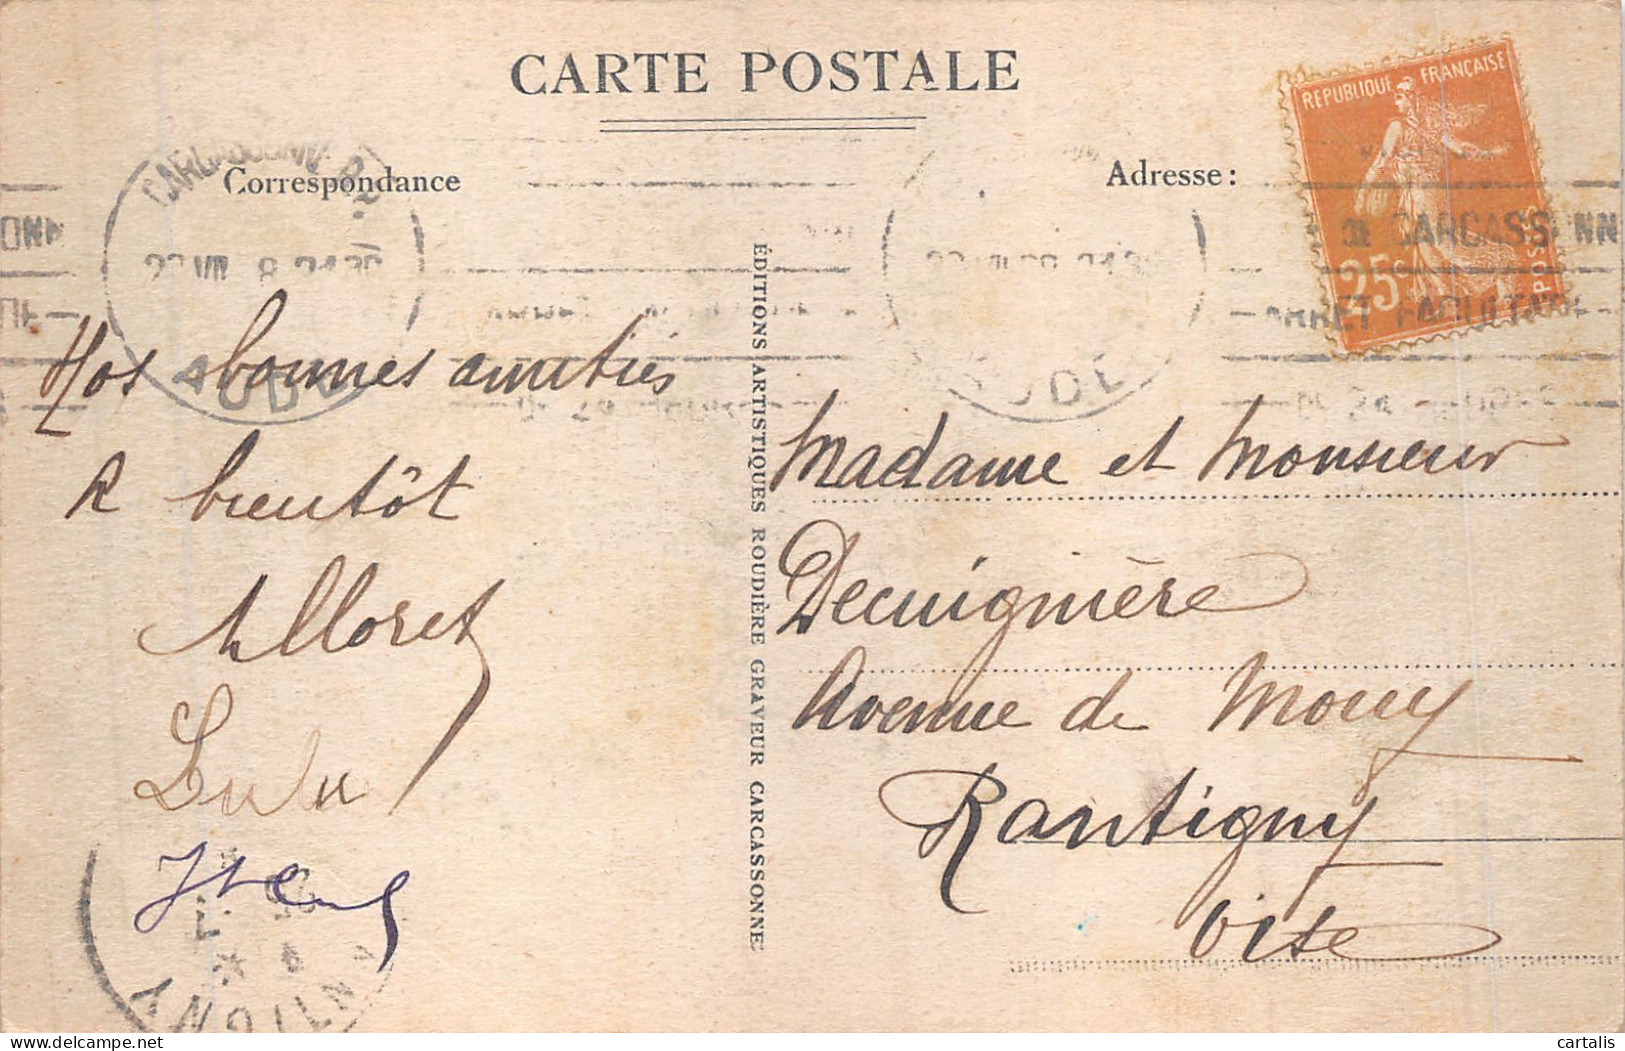 CARTE POSTALE
Correspondance
Adresse:
REPUBLIQUE FRANÇAISE
25c
POSTES
AUDE
CARCASSONN
ARRET FACULTATIF
Nos bonnes amitiés
A bientôt
Lloret
Lulu
ÉDITIONS ARTISTIQUES ROUDIÈRE GRAVEUR CARCASSONNE
Madame et Monsieur
Decuignière
Avenue de Mouy
Rantigny
Oise
ANTIGNY
delcampe.net
cartalis